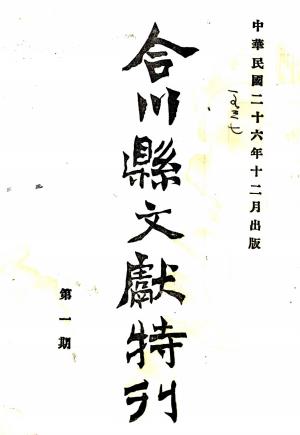 中華民國二十六年十二月出版
一九三七
合川縣文獻特刊
第一期